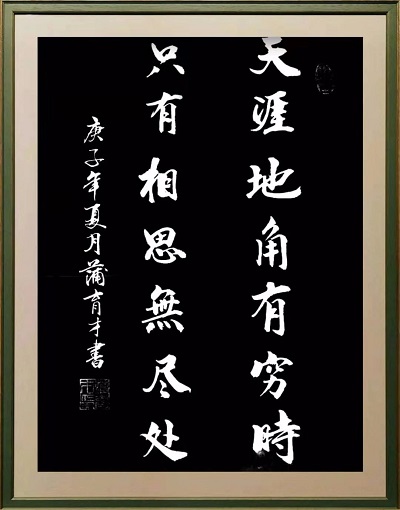 天涯地角有穷時
只有相思無尽处
庚子年夏月蒲育才書